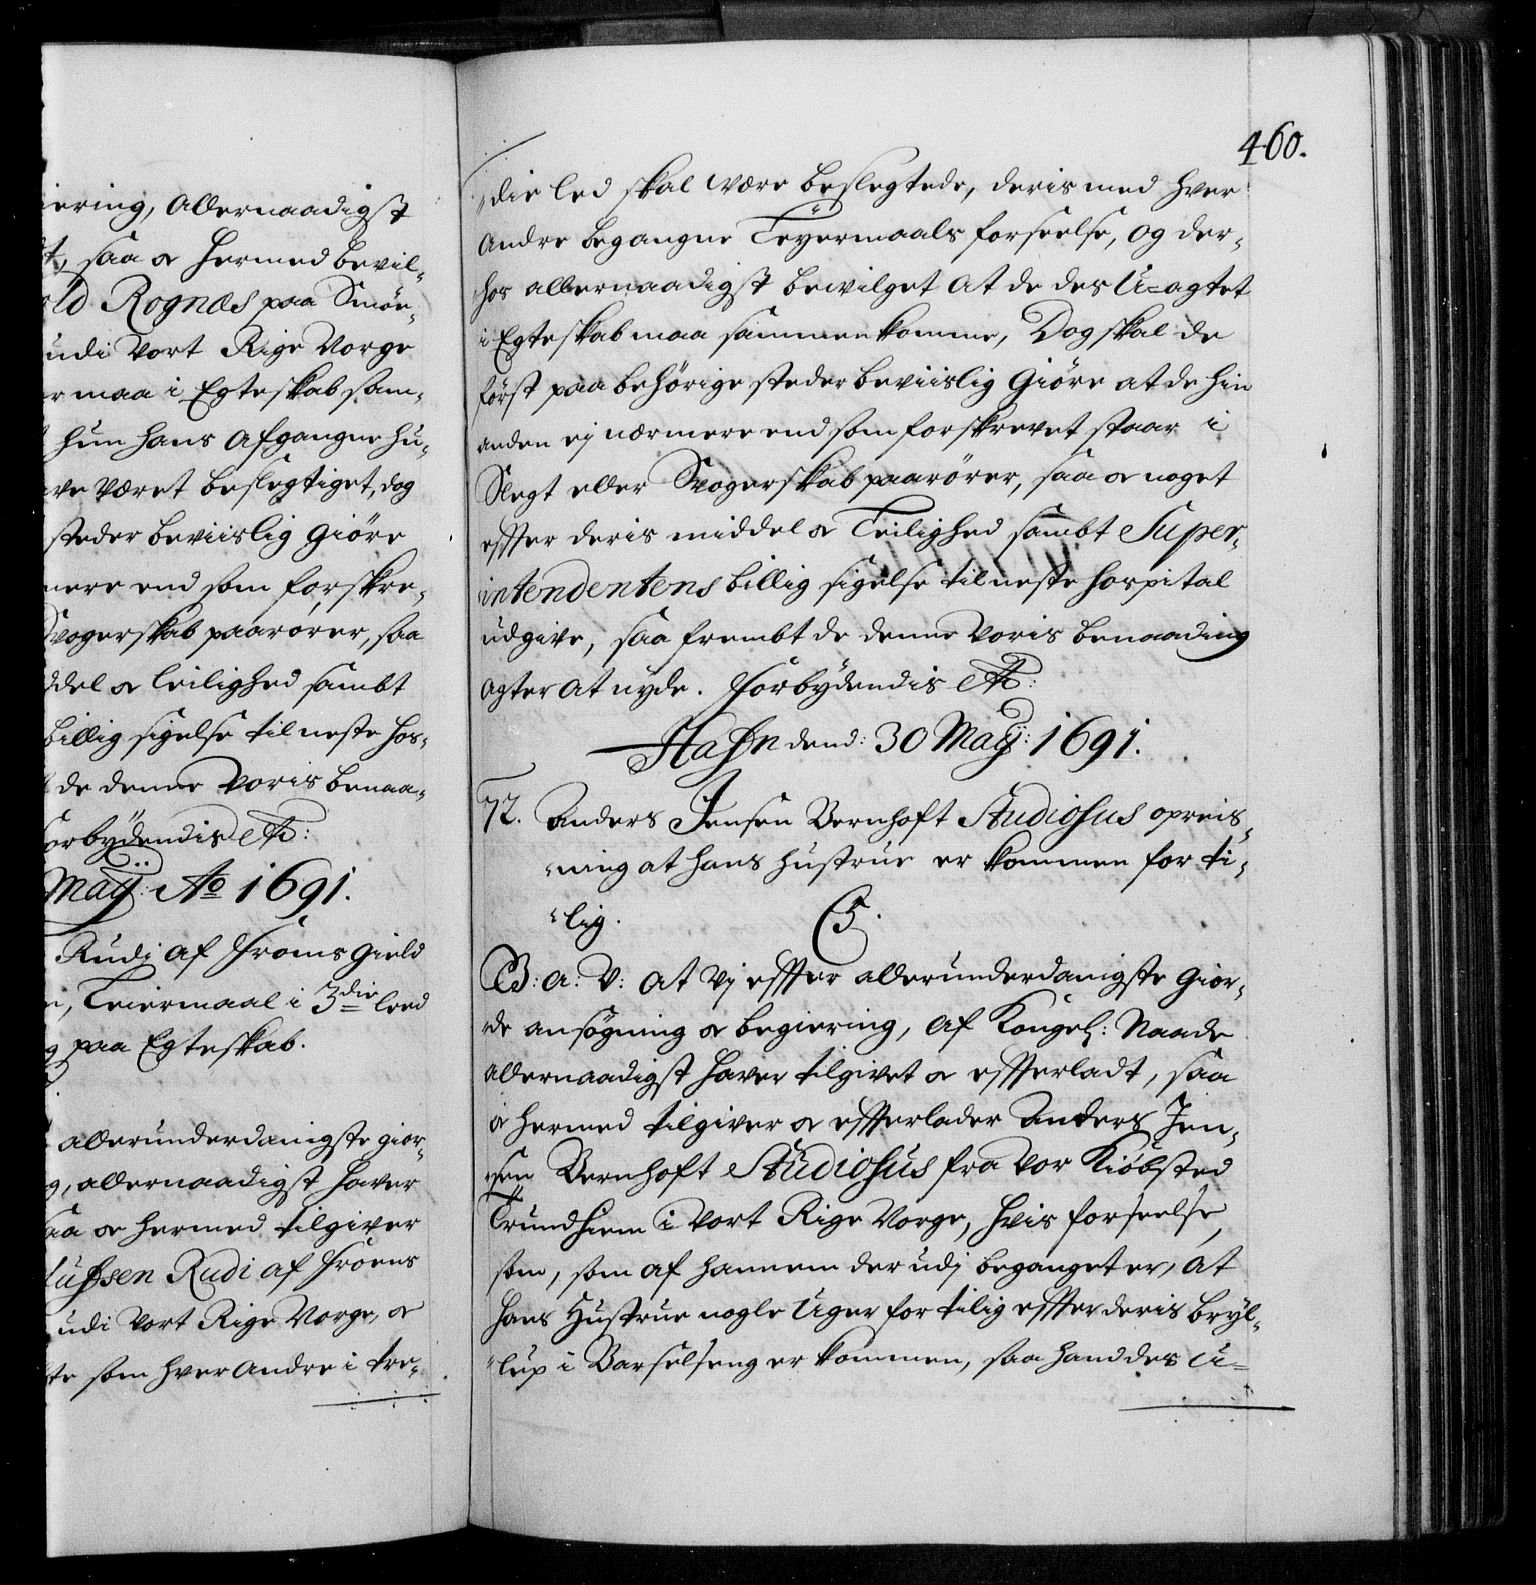 iering, Allernaadigst
t, saa et hermed bevil-
ld Rognæs paa Smör-
udi Vort Rige Norge
r maa i Egteskab sam-
hun hans Afgangne hu-
ve Været beslegtiget, dog
steder beviislig Giöre
nere end som forskre-
Svogerskab paarörer, saa
ddel et leilighed sambt
billig sigelse til neste hos-
de denne Voris benaa-
orbydendis etc:
Maÿ: Ao 1691.
Rudi af Froens gield
n, Leiermaal i 3die leed
g paa Egteskab.
allerunderdanigste gior-
g, allernaadigst haver
saa et hermed tilgiver
lufsen Rudi af Froens
udi Vort Rige Norge, et
te som hver Andre i tre-
460.
die led skal være beslegtede, deris med hver
Andre begangne Leyermaals forseelse, og der-
hos allernaadigst bevilget At de des U-agtet
i Egteskab maa sammenkomme, Dog skal de
först paa behörige steder beviislig Giöre at de hin
anden ej nærmere end som forskrevet staar i
Slegt eller Svogerskab paarörer, saa et noget
effter deris middel et Leilighed sambt Super-
intendentens billig sigelse til neste hospital
udgive, saa frembt de denne Voris benaading
agter At nyde. Forbydendis etc:
Hafn dend: 30 Maÿ: 1691.
72. Anders Jensen Bernhoft Studiosus opreis-
ning at hans hustrue er kommen for ti-
lig. C5.
G: A: V: At Vj effter allerunderdanigste gior-
de ansögning et begiering, Af Kongel: Naade
allernaadigst haver tilgivet et effterladt, saa
et hermed tilgiver et effterlader Anders Jen-
sen Bernhoft Studiosus fra Vor Kiöbsted
Trundhiem i Vort Rige Norge, hvis forseelse,
som, som af hannem der udj beganget er, At
hans Hustrue nogle Uger for tilig effter deris bryl-
lup i Barselseng er kommen, saa hand des U-